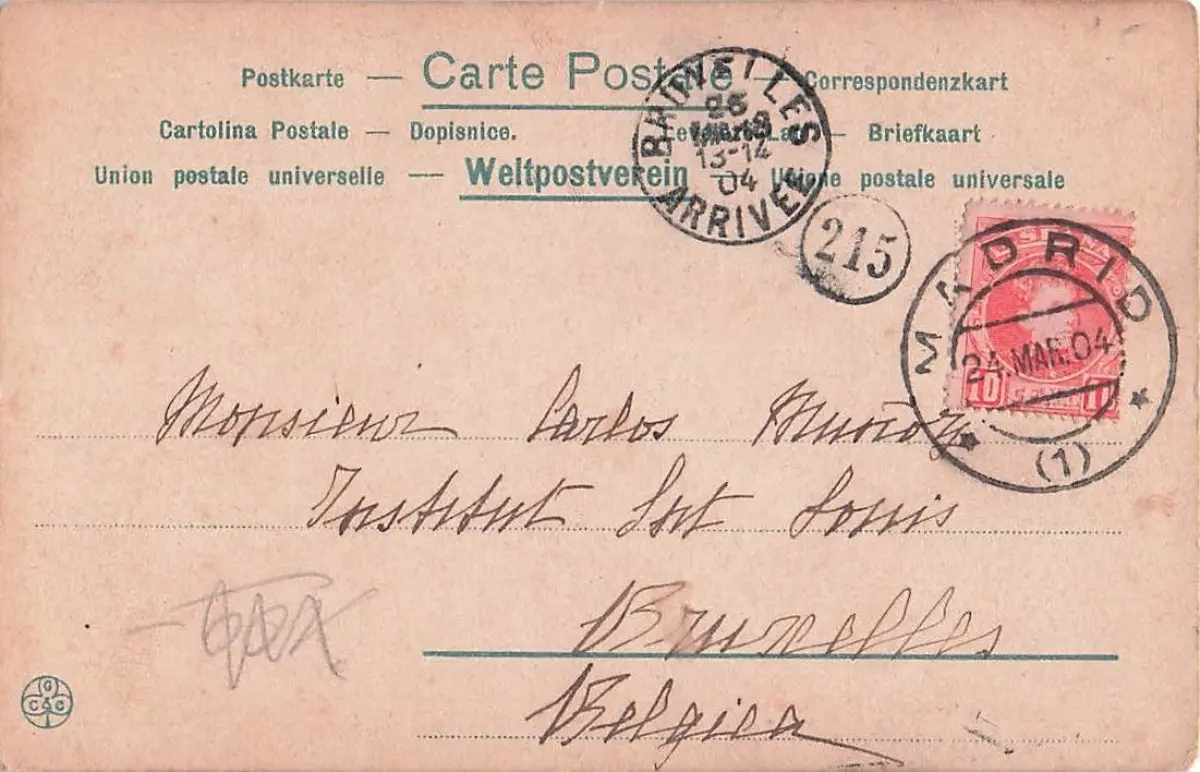 Postkarte — Carte Postale — Correspondenzkart
Cartolina Postale — Dopisnice. — Briefkaart
Union postale universelle — Weltpostverein — Unione postale universale
BRUXELLES
13-14
04
ARRIVÉE
215
MADRID
24.MAR.04
(1)
10
Monsieur Carlos Muñoz
Institut Snt Louis
Bruxelles
Belgica